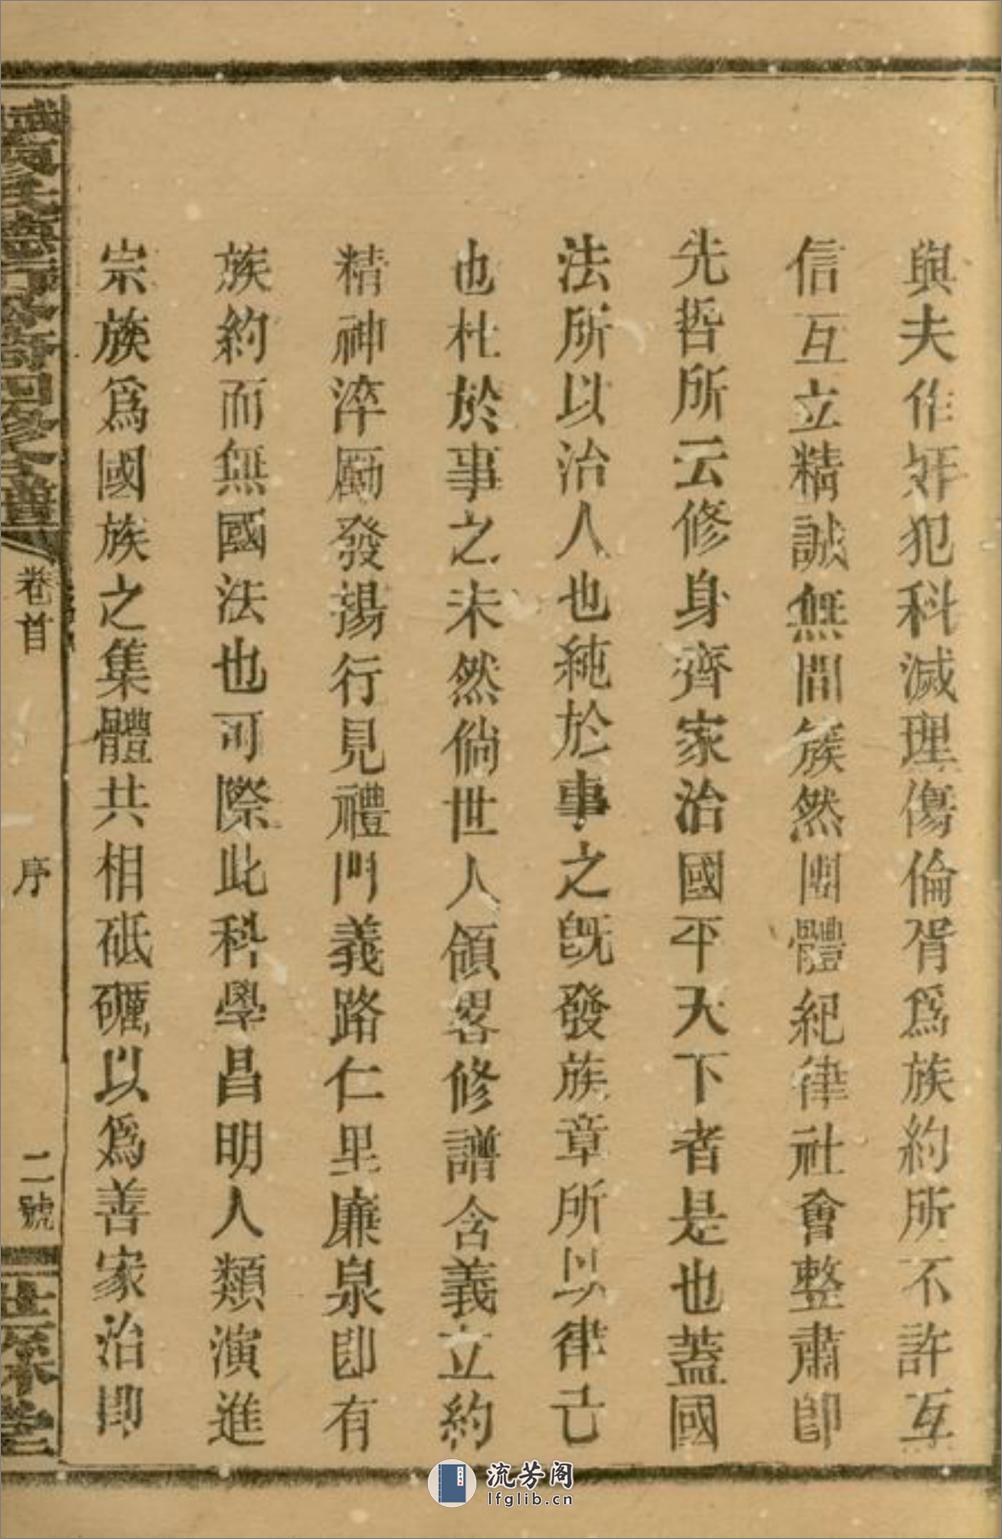 與夫作奸犯科滅理傷倫胥爲族約所不許互
信互立精誠無間族然團體紀律社會整肅卽
先哲所云修身齊家治國平天下者是也蓋國
法所以治人也純於事之旣發族章所以律己
也杜於事之未然倘世人領畧修譜含義立約
精神淬厲發揚行見禮門義路仁里廉泉卽有
族約而無國法也可際此科學昌明人類演進
宗族爲國族之集體共相砥礪以爲善家治卽
卷首
序
二號
流芳阁
lfglib.cn